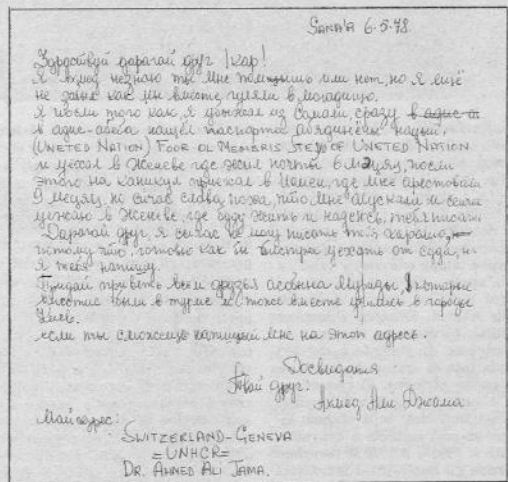 SANA'A 6-5-78.
Здраствуй дарагай друг Икар!
Я Ахмед незнаю ты мне помнишь или нет, но я ещё
не забыл как мы вместе гуляли в могадишо.
Я посли того как, я уезжал из Самали, сразу
в адис-абеба нашёл паспорта абядинёны нацый.
(UNETED NATION) FOOR OL MEMBRIS STETS OF UNETED NATION
и уехал в Женеве где жил почты 6 месяц, посли
этого на каникул приехал в Иемен, где мне арестовали
9 месяц, но сичас слава, что мне апускали и
уежаю в Женеве, где буду жить и надеюсь, тебя писать
Дарагой друг, я сичас не могу писать тебя харашо,
потому что, готовлю как бы быстра уехать от суда, но
я тебя напишу.
Придай приветь всем друзья асобына Мурады, которые
вместе были в турме и тоже вместе учились в городы
Киев.
если ты сможешь напиший мне на этот адресь.
Досвидания
Твой друг:
Ахмед Али Джама
Май адрес:
SWITZERLAND-GENEVA
=UNHCR=
DR. AHMED ALI JAMA.